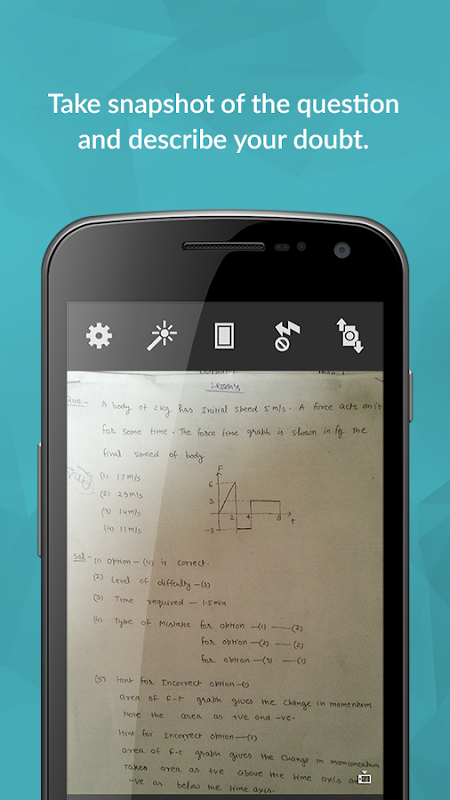 Take snapshot of the question
and describe your doubt.
Lesson
Que:- A body of 2kg has Initial speed 5m/s. A force acts on it
for some time. The force time graph is shown in fig. The
final speed of body
(1) 17m/s
(2) 25m/s
(3) 14m/s
(4) 11m/s
F
6
3
-3
2
4
8
t
Sol:- (1) option - (4) is correct.
(2) Level of difficulty - (3)
(3) Time required - 1.5min
(4) Type of Mistake for option -(1) —(2)
for option -(2) —(2)
for option -(3) —(1)
(5) Hint for Incorrect option -(1)
area of F-t graph gives the change in momentum
Note the area as +ve and -ve.
Hint for Incorrect option -(1)
area of F-t graph gives the change in momomentum
Takes area as +ve above the time axis
-ve as below the time axis.